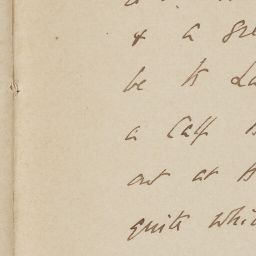 & a gre
be to La
a Calf
out at
quite whi